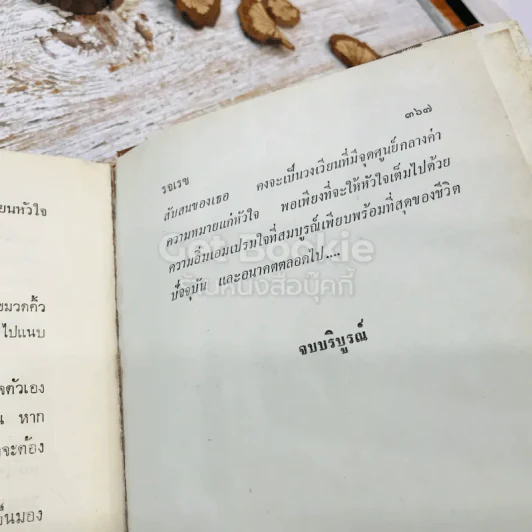 ยนหัวใจ
ขมวดคิ้ว
ไปแนบ
จตัวเอง
น หาก
จะต้อง
ป็นมอง
๓๖๗
รจเรข
สับสนของเธอ คงจะเป็นวงเวียนที่มีจุดศูนย์กลางค่า
ความหมายแก่หัวใจ พอเพียงที่จะให้หัวใจเต็มไปด้วย
ความอิ่มเอมเปรมใจที่สมบูรณ์เพียบพร้อมที่สุดของชีวิต
ปัจจุบัน และอนาคตตลอดไป....
จบบริบูรณ์
Got Bookie
ร้านหนังสือบุ๊คกี้